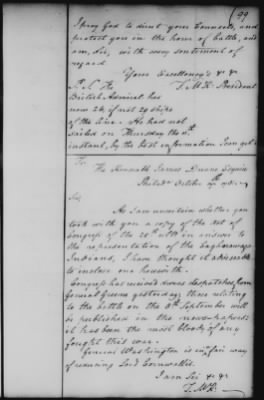 99
I pray God to direct your Councils, and
protect you in the hour of battle, and
am, Sir, with every sentiment of
regard
Your Excellency's &c &c
P.S. The T. M:K. President
British Admiral has
now 26, if not 29 ships
of the line. He had not
sailed on Thursday the
instant, by the best information I can get.
To,
The Honorable James Duane Esquire
Philada October 1781
Sir,
As I am uncertain whether you
took with you a copy of the Act of
Congress of the 20th ulto in answer to
the representation of the Caghnawaga
Indians, I have thought it advisable
to inclose one herewith.
Congress has received dispatches from
General Greene yesterday; those relating
to the battle on the 8th September will
be published in the newspapers:
it has been the most bloody of any
fought this war.
General Washington is in fair way
of ruining Lord Cornwallis.
I am Sir &c &c
T. M:K.